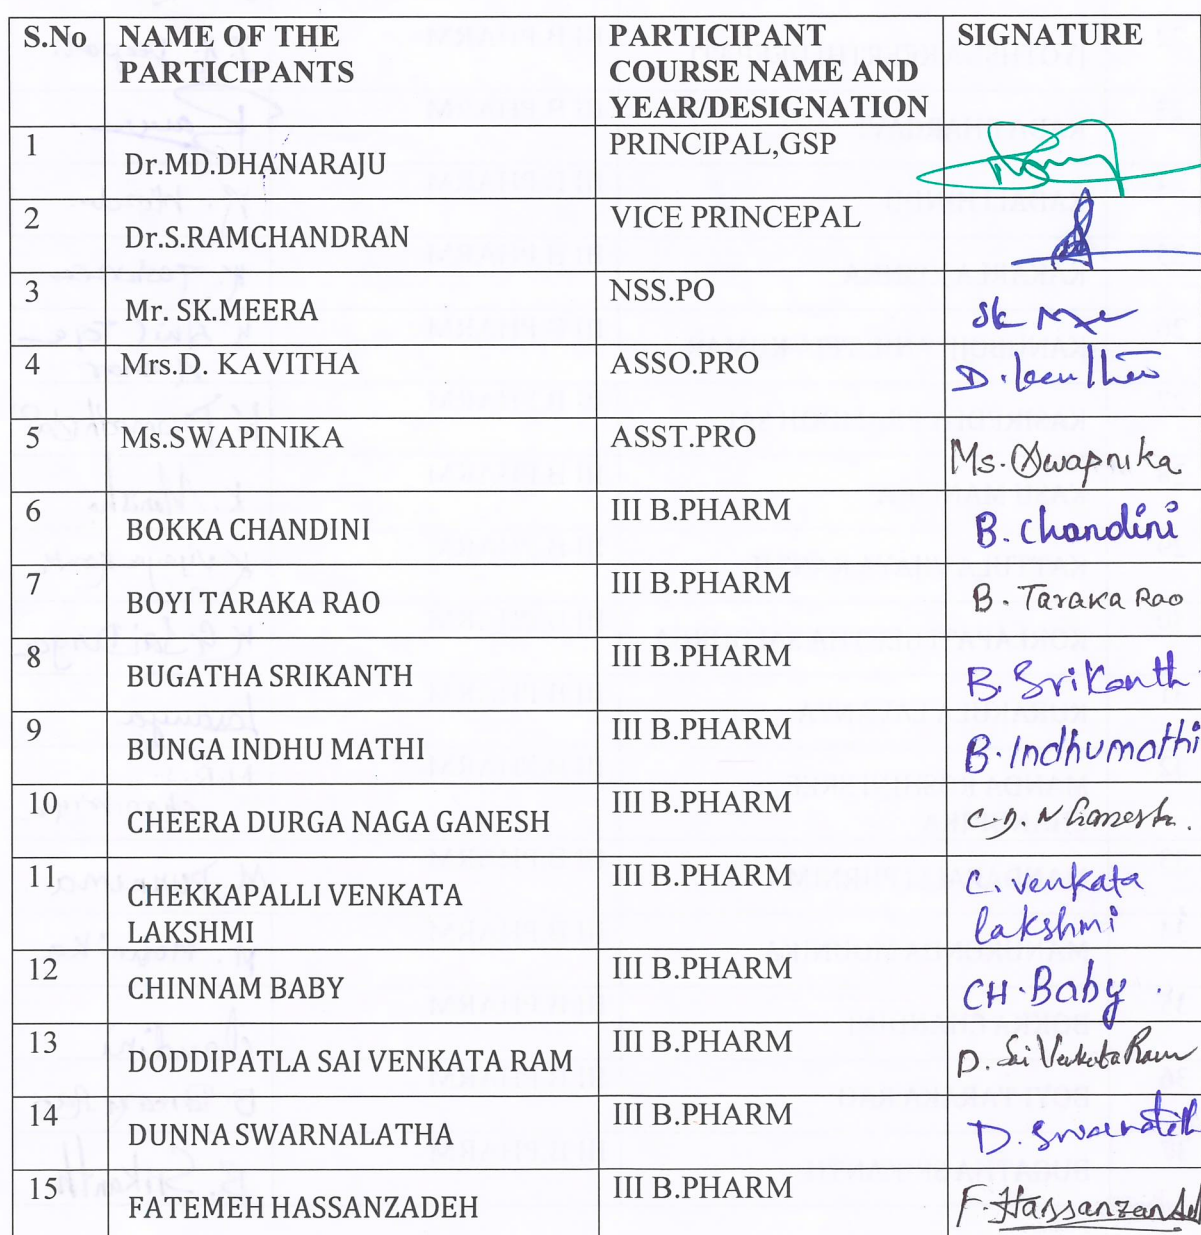 S.No NAME OF THE PARTICIPANTS PARTICIPANT COURSE NAME AND YEAR/DESIGNATION SIGNATURE
1 Dr.MD.DHANARAJU PRINCIPAL,GSP
2 Dr.S.RAMCHANDRAN VICE PRINCEPAL
3 Mr. SK.MEERA NSS.PO SK
4 Mrs.D. KAVITHA ASSO.PRO D.
5 Ms.SWAPINIKA ASST.PRO Ms. Swapnika
6 BOKKA CHANDINI III B.PHARM B. Chandini
7 BOYI TARAKA RAO III B.PHARM B. Taraka Rao
8 BUGATHA SRIKANTH III B.PHARM B. Srikanth
9 BUNGA INDHU MATHI III B.PHARM B. Indhumathi
10 CHEERA DURGA NAGA GANESH III B.PHARM C.D. N Ganesh.
11 CHEKKAPALLI VENKATA LAKSHMI III B.PHARM C. Venkata lakshmi
12 CHINNAM BABY III B.PHARM CH. Baby .
13 DODDIPATLA SAI VENKATA RAM III B.PHARM D. Sai Venkata Ram
14 DUNNA SWARNALATHA III B.PHARM D.
15 FATEMEH HASSANZADEH III B.PHARM F.